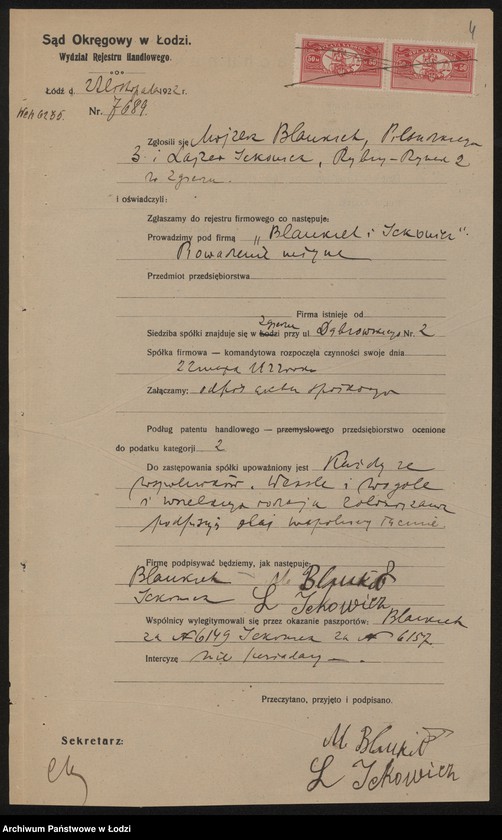 4
Sąd Okręgowy w Łodzi.
Wydział Rejestru Handlowego.
Łódź d. 1922 r.
Nr. 7689.
Zgłosili się Blaukiet,
3 i Lajzer Ickowicz, Rynek 2
w Zgierzu.
i oświadczyli:
Zgłaszamy do rejestru firmowego co następuje:
Prowadzimy pod firmą „Blaukiet i Ickowicz".
Prowadzenie młyna
Przedmiot przedsiębiorstwa
Firma istnieje od
Zgierzu
Siedziba spółki znajduje się w Łodzi przy ul. Dąbrowskiego Nr. 2
Spółka firmowa — komandytowa rozpoczęła czynności swoje dnia
22
Załączamy: odpis aktu
Podług patentu handlowego — przemysłowego przedsiębiorstwo ocenione
do podatku kategorji 2
Do zastępowania spółki upoważniony jest Każdy ze
wspólników. Weksle i wogóle
i wszelkiego rodzaju zobowiązania
łącznie
Firmę podpisywać będziemy, jak następuje:
Blaukiet M. Blaukit
Ickowicz L Ickowicz
Wspólnicy wylegitymowali się przez okazanie paszportów: Blaukiet
za № 6149 Ickowicz za № 6157
Intercyzę nie posiadamy.
Przeczytano, przyjęto i podpisano.
Sekretarz:
M Blaukit
L Ickowicz
Archiwum Państwowe w Łodzi